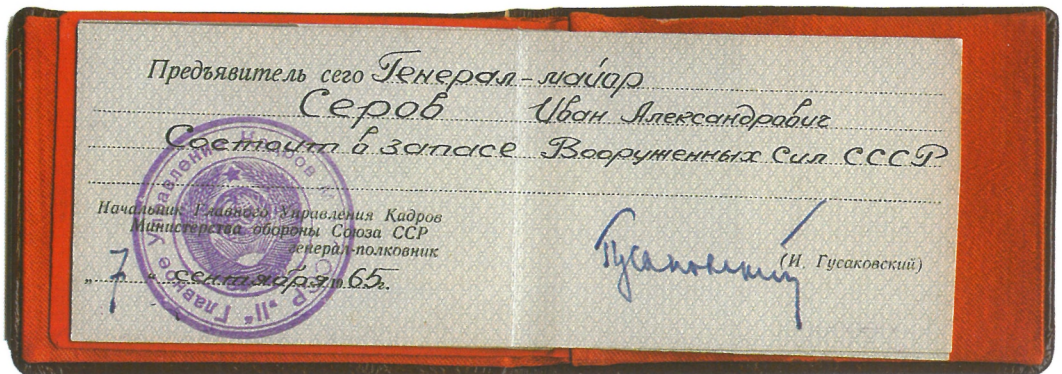 Предъявитель сего Генерал-майор
Серов Иван Александрович
Состоит в запасе Вооруженных Сил СССР
Начальник Главного Управления Кадров
Министерства обороны Союза ССР
генерал-полковник
(И. Гусаковский)
„ 7 “ сентября 1965г.
Гусаковский
Главное Управление Кадров